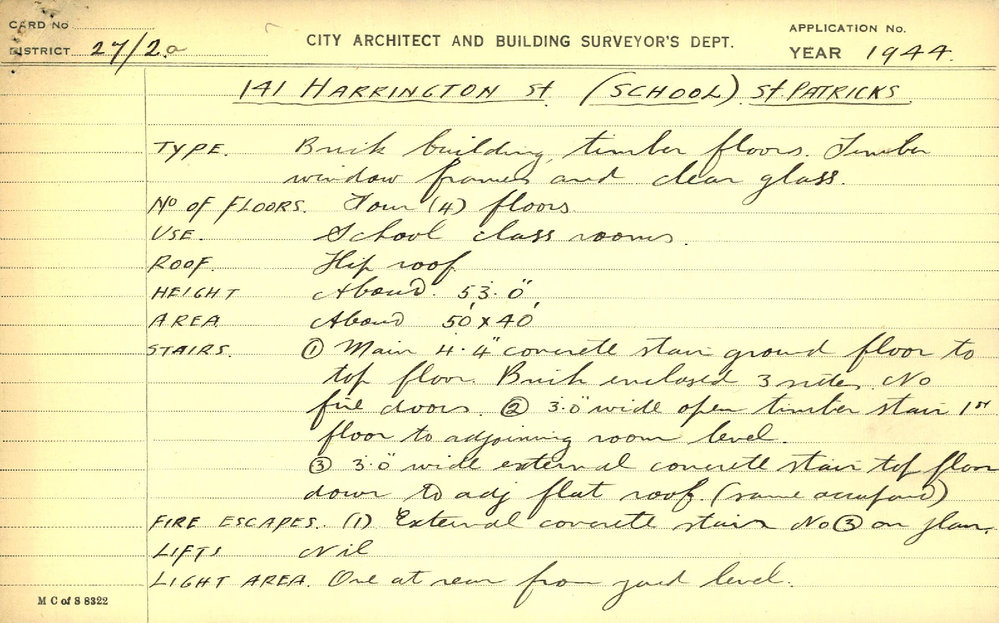 CARD No
DISTRICT 27/2a
CITY ARCHITECT AND BUILDING SURVEYOR'S DEPT.
APPLICATION No.
YEAR 1944.
141 HARRINGTON St (SCHOOL) St PATRICKS
TYPE. Brick building, timber floors. Timber
window frames and clear glass.
No OF FLOORS. Four (4) floors.
USE. School class rooms.
ROOF. Hip roof
HEIGHT About 53'.0"
AREA About 50' x 40'
STAIRS. ① Main 4'.4" concrete stair ground floor to
top floor. Brick enclosed 3 sides. No
fire doors. ② 3'.0" wide open timber stair 1st
floor to adjoining room level.
③ 3'.0" wide external concrete stair top floor
down to adj flat roof. (same occupant)
FIRE ESCAPES. (1) External concrete stair No ③ on plan.
LIFTS Nil
LIGHT AREA. One at rear from yard level.
M C of S 8322